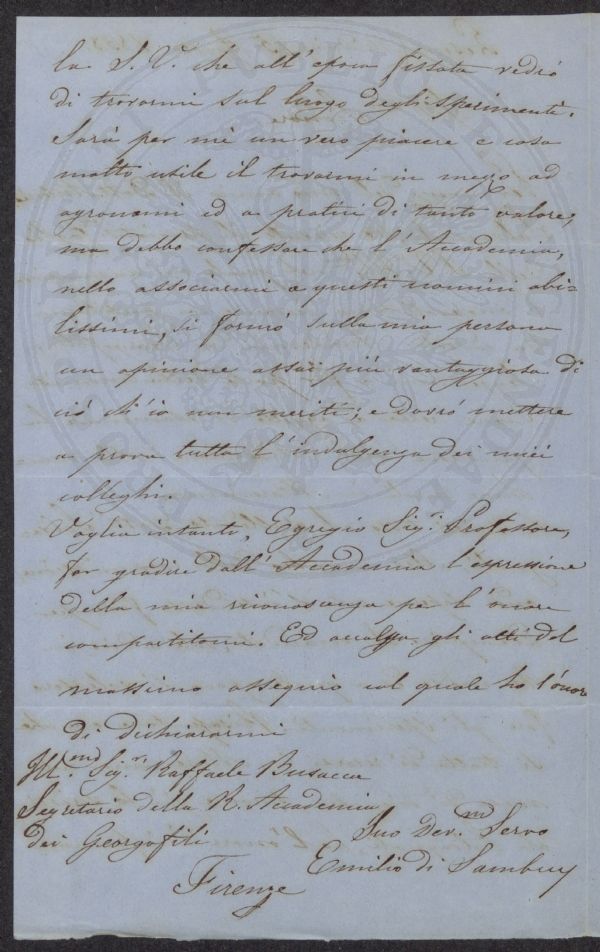 la S. V. che all'epoca fissata vedrò
di trovarmi sul luogo degli sperimenti.
Sarà per me un vero piacere e cosa
molto utile il trovarmi in mezzo ad
agronomi ed a pratici di tanto valore,
ma debbo confessare che l'Accademia,
nello associarmi a questi uomini abi=
lissimi, si formò sulla mia persona
un opinione assai più vantaggiosa di
ciò ch'io non meriti; e dovrò mettere
a prova tutta l'indulgenza dei miei
colleghi.
Voglia intanto, Egregio Sig.r Professore,
far gradire dall'Accademia l'espressione
della mia riconoscenza per l'onore
compartitomi. Ed accolga gli atti del
massimo ossequio col quale ho l'onore
di dichiararmi
Ill.mo Sig.r Raffaele Busacca
Segretario della R. Accademia
dei Georgofili
Firenze
Suo Dev.mo Servo
Emilio di Sambuy